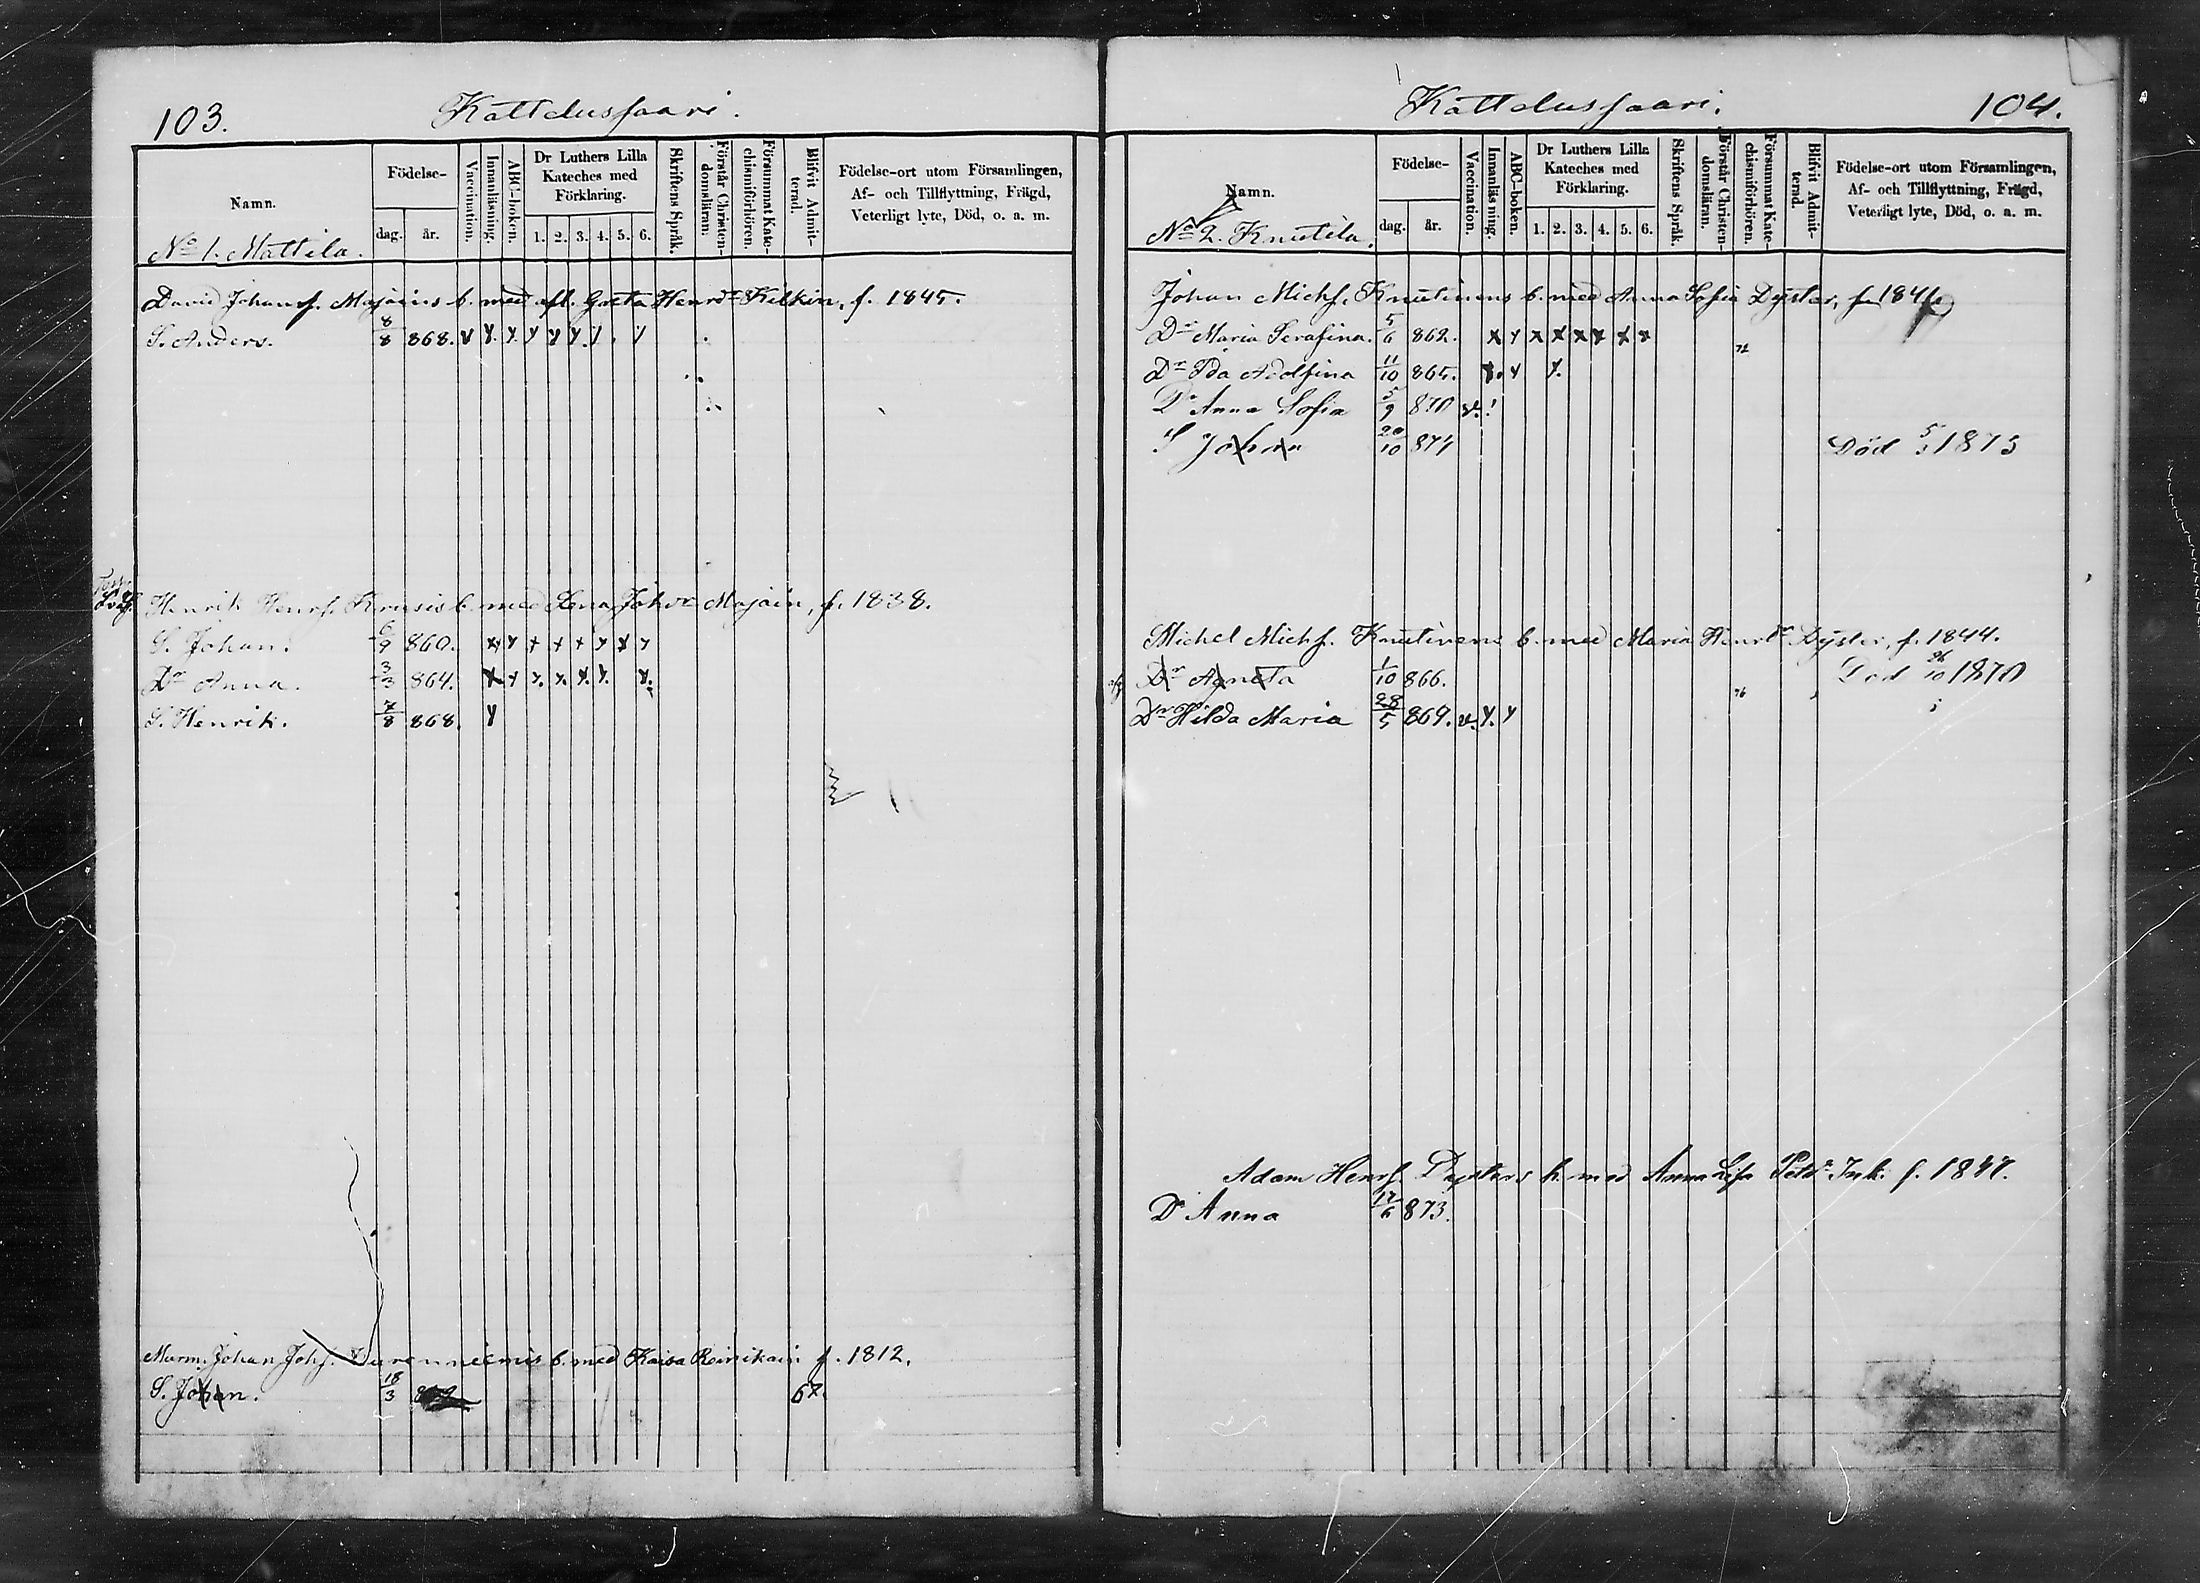 103.
Kattelussaari.
Namn.
Födelse-
dag.
år.
Vaccination.
Innanläsning.
ABC-boken.
Dr Luthers Lilla
Kateches med
Förklaring.
1. 2. 3. 4. 5. 6.
Skriftens Språk.
Förstår Christen-
domsläran.
Försummat Kate-
chismiförhören.
Blifvit Admit-
terad.
Födelse-ort utom Församlingen,
Af- och Tillflyttning, Frägd,
Veterligt lyte, Död, o. a. m.
No 1. Mattila.
David Johansf. Majains b. med afl. Greta Henrdr Kelkin, f. 1845.
S. Anders. 8/8 868. v y. y. y y y. y. y
Henrik Henrsf. b. med Lena Johdr Majain, f. 1838.
S. Johan. 6/9 860. x y + + + y x y
Dr Anna. 3/3 864. x y y. y. y. y. y.
S. Henrik. 7/8 868. y
Murm. Johan Johsf. b. med Kaisa Reinikain f. 1812.
S. Johan. 18/3 67.
Kattelussaari.
104.
Namn.
Födelse-
dag.
år.
Vaccination.
Innanläsning.
ABC-boken.
Dr Luthers Lilla
Kateches med
Förklaring.
1. 2. 3. 4. 5. 6.
Skriftens Språk.
Förstår Christen-
domsläran.
Försummat Kate-
chismiförhören.
Blifvit Admit-
terad.
Födelse-ort utom Församlingen,
Af- och Tillflyttning, Frägd,
Veterligt lyte, Död, o. a. m.
No 2. Knutila.
Johan Michsf. Knutinens b. med Anna Sofia Dyster, f.
Dr Maria Serafina. 5/6 862. x y x x x x x x
Dr Ida Adolfina 11/10 865. y. y y.
Dr Anna Sofia 5/9 870 v.
S Johan 20/10 874 Död 1875
Michel Michsf. Knutinens b. med Maria Henrdr Dyster, f. 1844.
Dr Agneta 1/10 866. Död 26/10 1870
Dr Hilda Maria 28/5 869. v. y. y
Adam Henrsf. Dysters h. med Anna Lisa f. 1847.
Dr Anna 17/6 873.